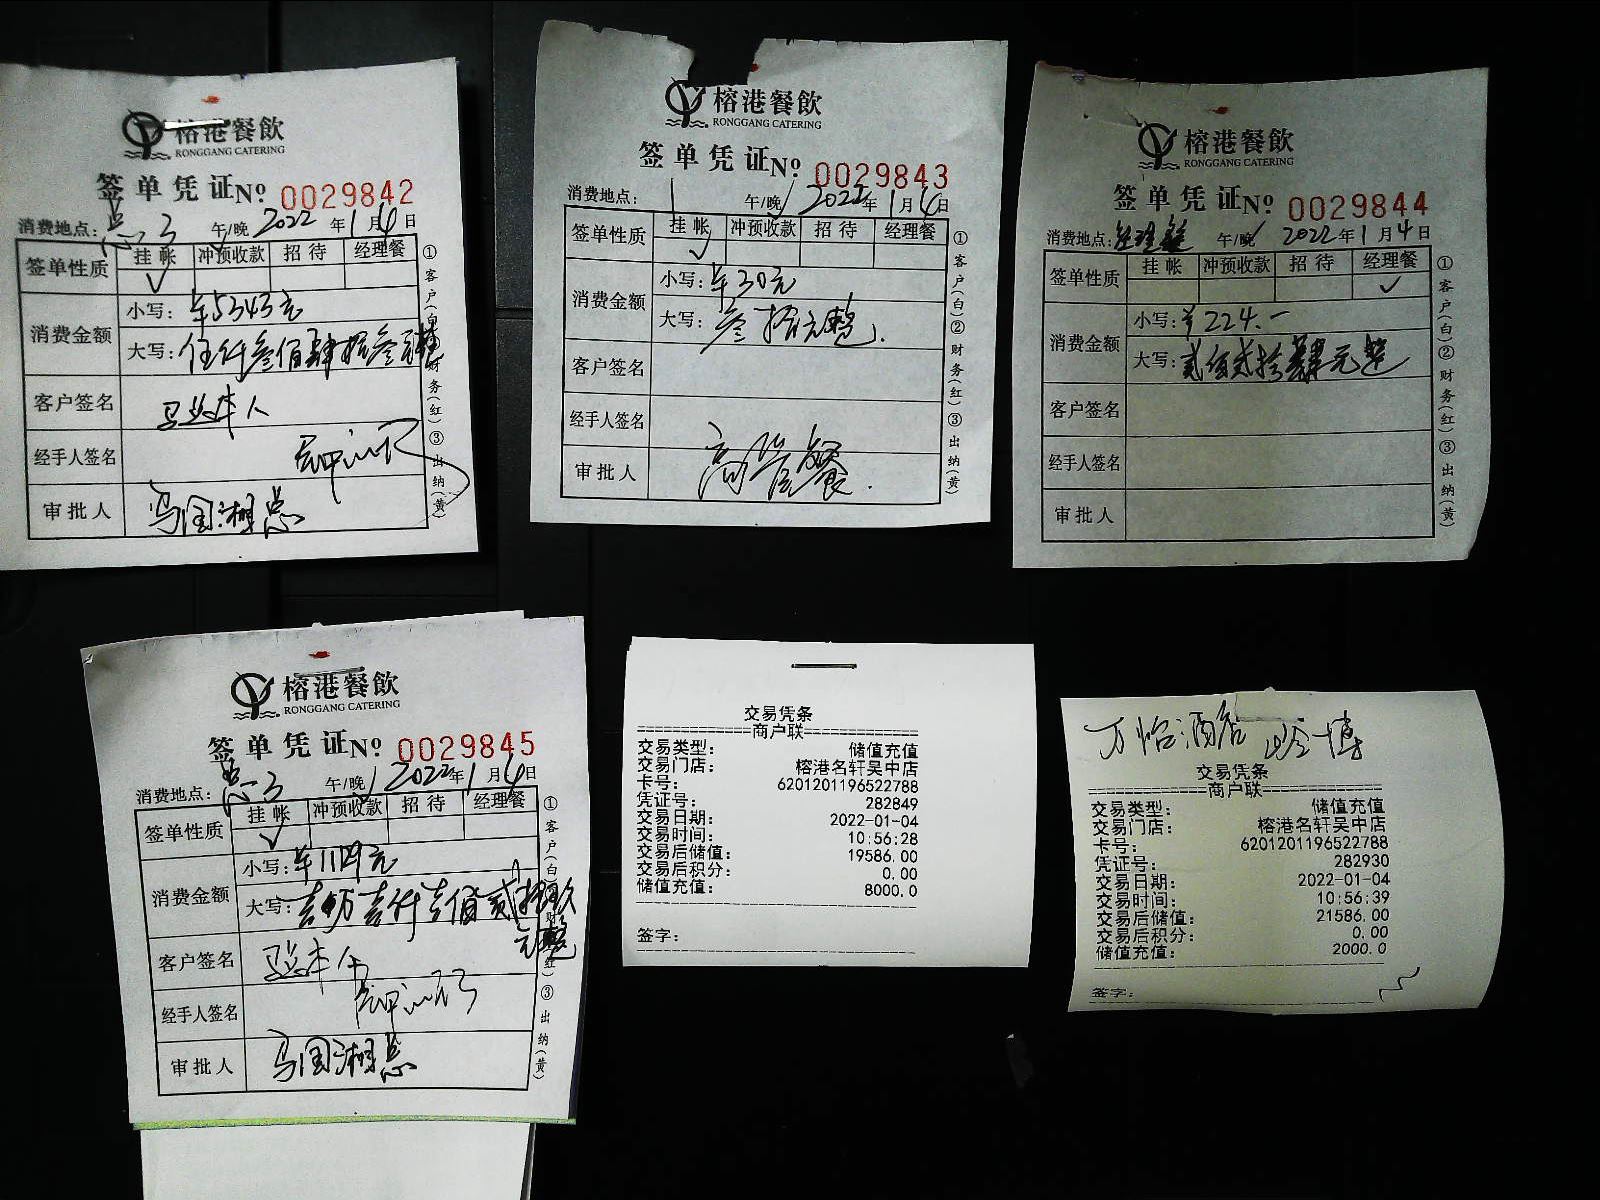 榕港餐飲
RONGGANG CATERING
签单凭证 No 0029842
消费地点: 总3 午/晚 2022年1月4日
签单性质 挂帐 冲预收款 招待 经理餐
✓
消费金额 小写: ¥5343元
大写: 伍仟叁佰肆拾叁元整
客户签名 马总本人
经手人签名
审批人 马国湘总
①客户(白)②财务(红)③出纳(黄)
榕港餐飲
RONGGANG CATERING
签单凭证 No 0029843
消费地点: 午/晚 2022年1月4日
签单性质 挂帐 冲预收款 招待 经理餐
✓
消费金额 小写: ¥30元
大写: 叁拾元整.
客户签名
经手人签名
审批人 高管餐.
①客户(白)②财务(红)③出纳(黄)
榕港餐飲
RONGGANG CATERING
签单凭证 No 0029844
消费地点: 经理餐 午/晚 2022年1月4日
签单性质 挂帐 冲预收款 招待 经理餐
✓
消费金额 小写: ¥224.一
大写: 贰佰贰拾肆元整
客户签名
经手人签名
审批人
①客户(白)②财务(红)③出纳(黄)
榕港餐飲
RONGGANG CATERING
签单凭证 No 0029845
消费地点: 总3 午/晚 2022年1月4日
签单性质 挂帐 冲预收款 招待 经理餐
✓
消费金额 小写:
大写: 壹万壹仟壹佰贰拾玖
元整
客户签名 马总本人
经手人签名
审批人 马国湘总
①客户(白)②财务(红)③出纳(黄)
交易凭条
商户联
交易类型: 储值充值
交易门店: 榕港名轩吴中店
卡号: 6201201196522788
凭证号: 282849
交易日期: 2022-01-04
交易时间: 10:56:28
交易后储值: 19586.00
交易后积分: 0.00
储值充值: 8000.0
签字:
万怡酒店
交易凭条
商户联
交易类型: 储值充值
交易门店: 榕港名轩吴中店
卡号: 6201201196522788
凭证号: 282930
交易日期: 2022-01-04
交易时间: 10:56:39
交易后储值: 21586.00
交易后积分: 0.00
储值充值: 2000.0
签字: